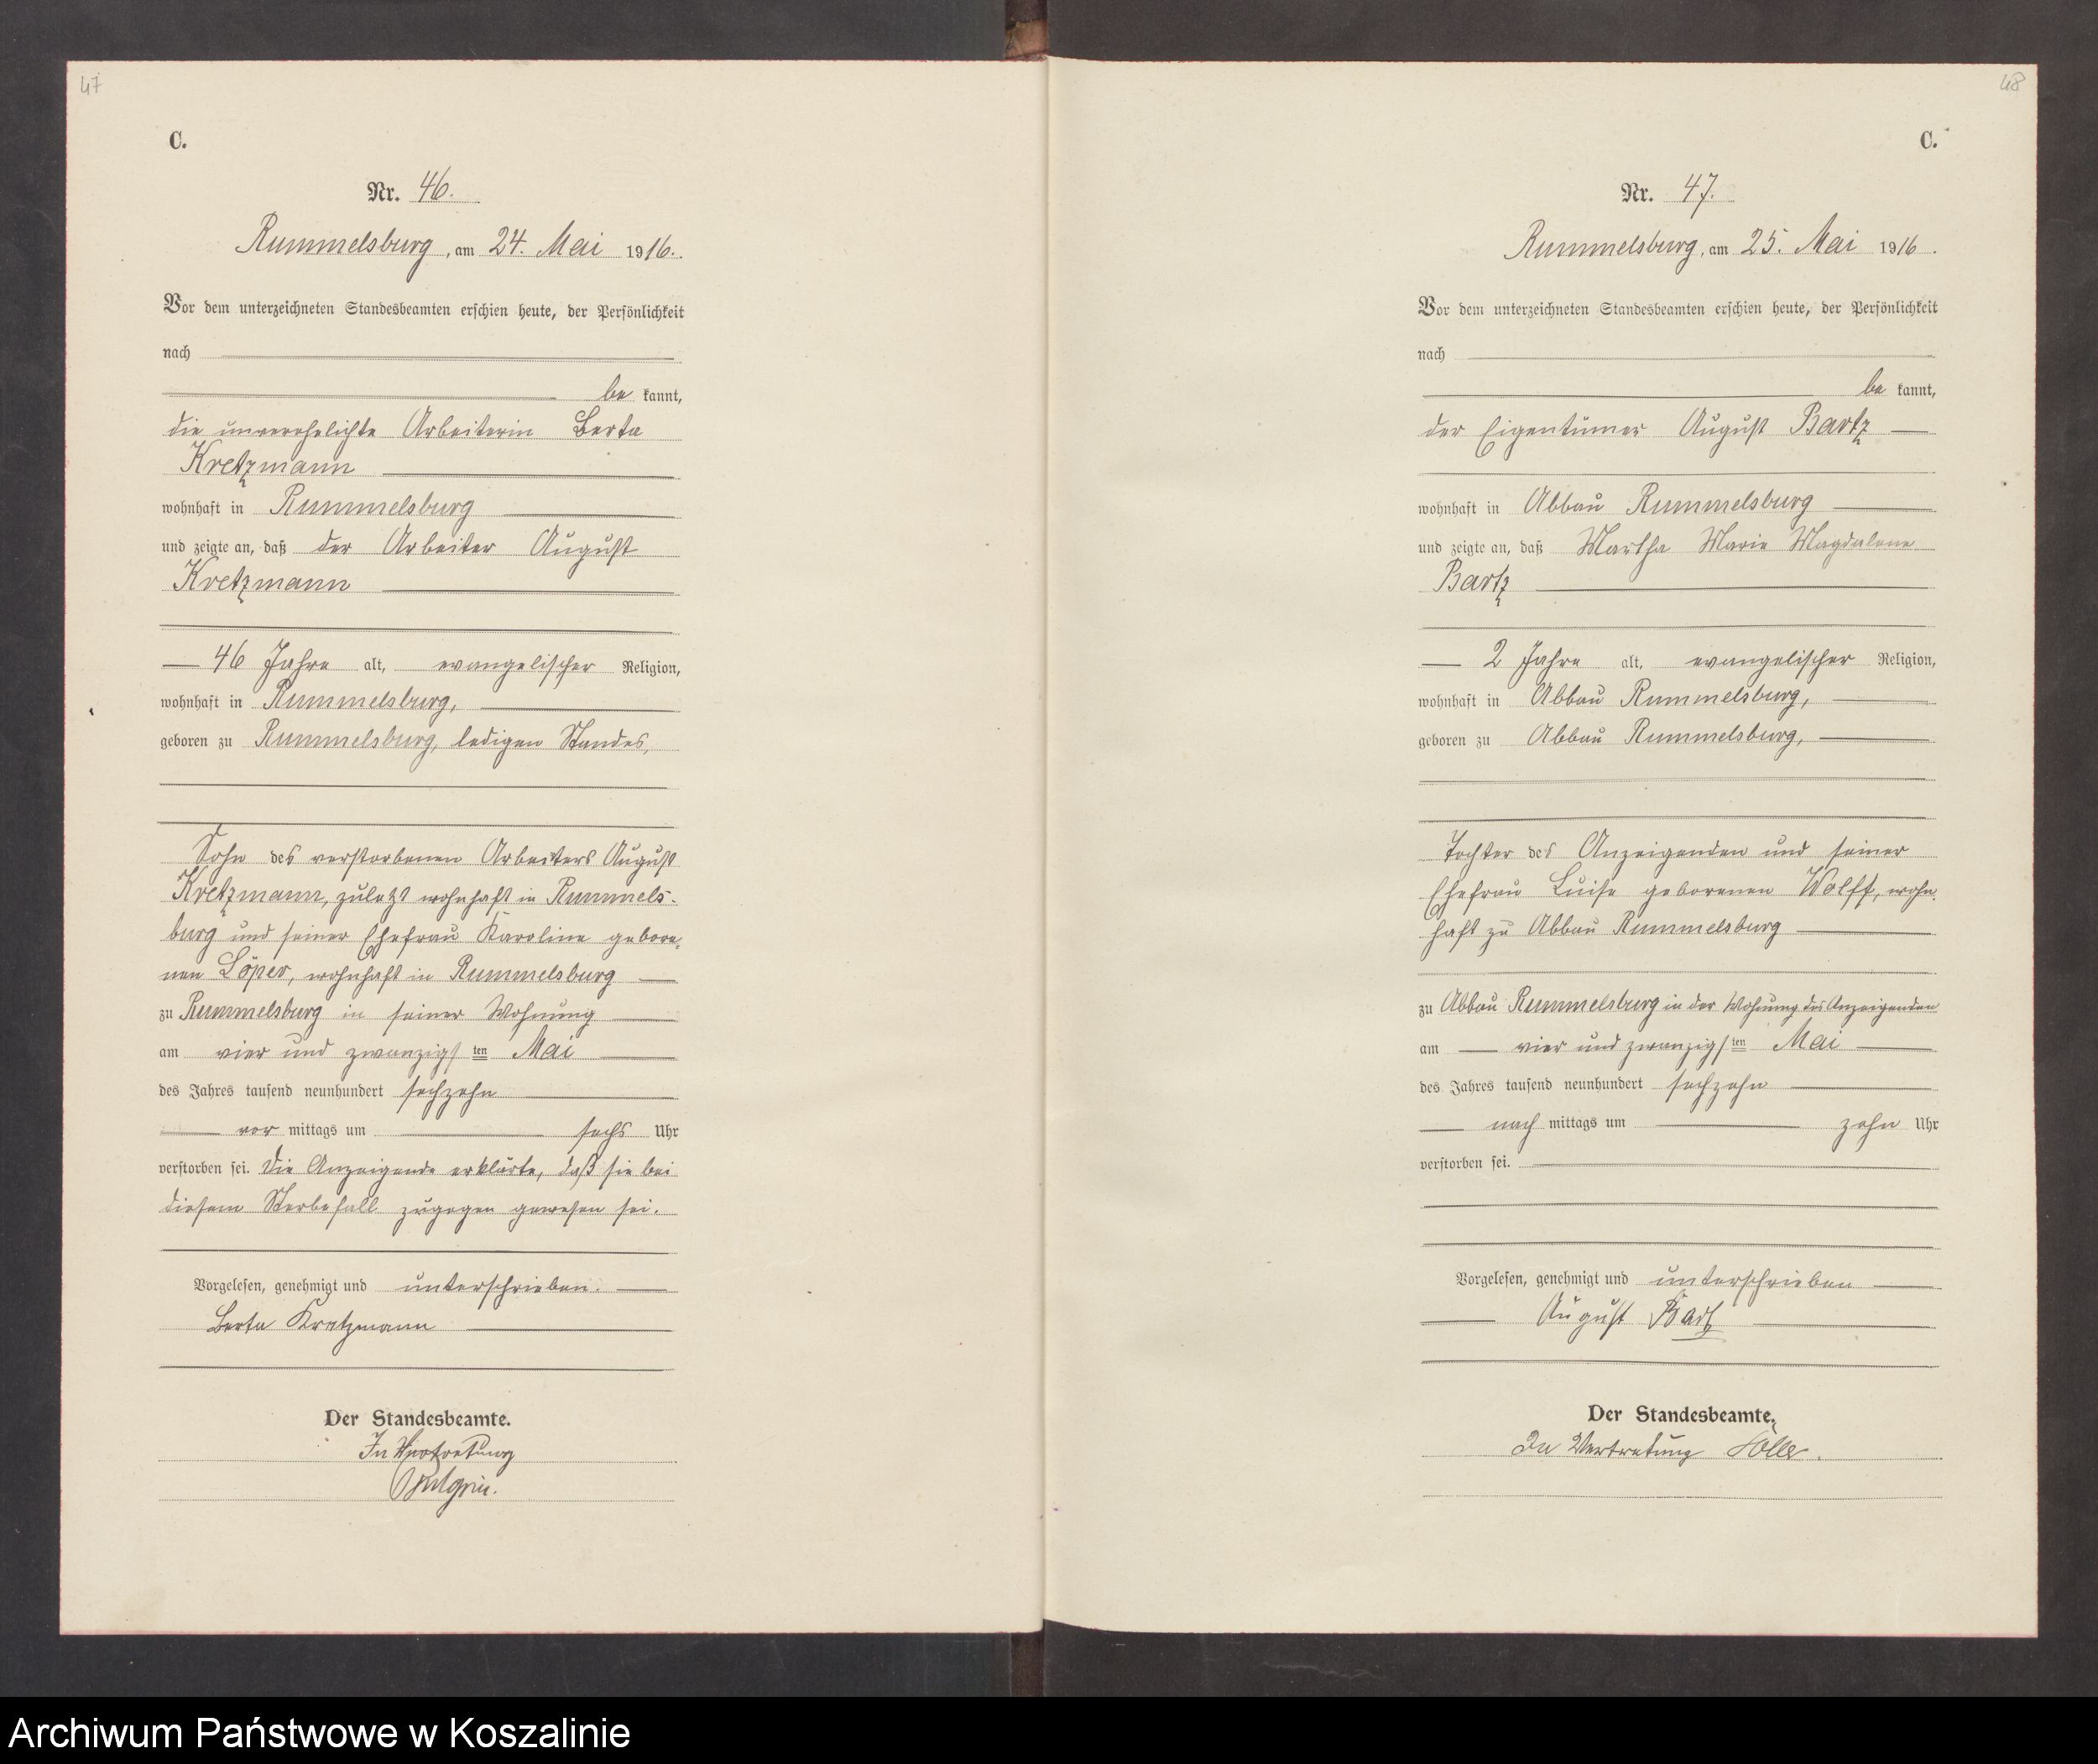 47
C.
Nr. 46.
Rummelsburg, am 24. Mai 1916.
Vor dem unterzeichneten Standesbeamten erschien heute, der Persönlichkeit
nach
be kannt,
die unverehelichte Arbeiterin Berta
Kretzmann
wohnhaft in Rummelsburg
und zeigte an, daß der Arbeiter August
Kretzmann
46 Jahre alt, evangelischer Religion,
wohnhaft in Rummelsburg,
geboren zu Rummelsburg, ledigen Standes,
Sohn des verstorbenen Arbeiters August
Kretzmann, zuletzt wohnhaft in Rummels-
burg und seiner Ehefrau Karoline gebore-
nen Löper, wohnhaft in Rummelsburg
zu Rummelsburg in seiner Wohnung
am vier und zwanzigsten Mai
des Jahres tausend neunhundert sechzehn
vor mittags um sechs Uhr
verstorben sei. Die Anzeigende erklärte, daß sie bei
diesem Sterbefall zugegen gewesen sei.
Vorgelesen, genehmigt und unterschrieben.
Berta Kretzmann
Der Standesbeamte.
In Vertretung
48
C.
Nr. 47.
Rummelsburg, am 25. Mai 1916.
Vor dem unterzeichneten Standesbeamten erschien heute, der Persönlichkeit
nach
be kannt,
der Eigentümer August Bartz
wohnhaft in Abbau Rummelsburg
und zeigte an, daß Martha Marie Magdalene
Bartz
2 Jahre alt, evangelischer Religion,
wohnhaft in Abbau Rummelsburg,
geboren zu Abbau Rummelsburg,
Tochter des Anzeigenden und seiner
Ehefrau Luise geborenen Wolff, wohn-
haft zu Abbau Rummelsburg
zu Abbau Rummelsburg in der Wohnung des Anzeigenden
am vier und zwanzigsten Mai
des Jahres tausend neunhundert sechzehn
nach mittags um zehn Uhr
verstorben sei.
Vorgelesen, genehmigt und unterschrieben
August Bartz
Der Standesbeamte.
In Vertretung
Archiwum Państwowe w Koszalinie